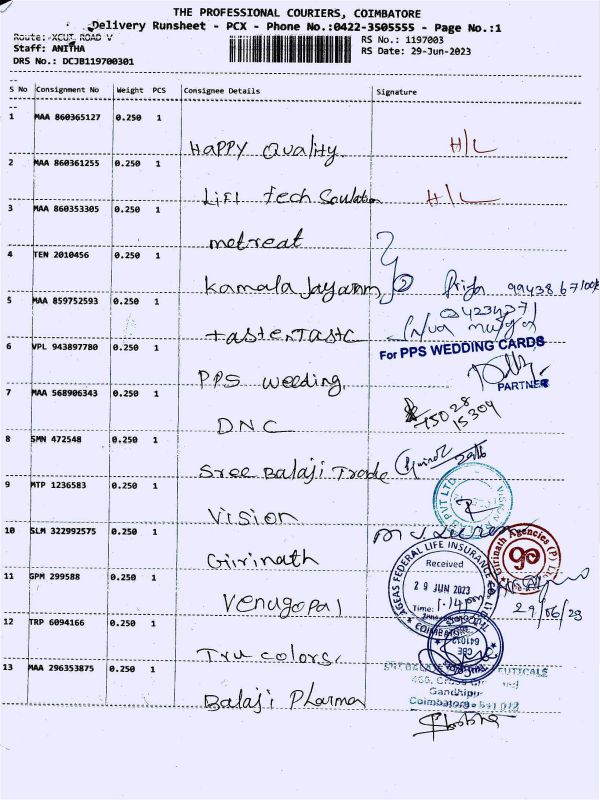 THE PROFESSIONAL COURIERS, COIMBATORE
Delivery Runsheet - PCX - Phone No.:0422-3505555 - Page No.:1
Route: XCUT ROAD V
RS No.: 1197003
Staff: ANITHA
RS Date: 29-Jun-2023
DRS No.: DCJB119700301
S No Consignment No Weight PCS Consignee Details Signature
1 MAA 860365127 0.250 1
Happy Quality H/L
2 MAA 860361255 0.250 1
Lifi Tech H/L
3 MAA 860353305 0.250 1
metreat
4 TEN 2010456 0.250 1
Kamala Jayanm Priya
5 MAA 859752593 0.250 1
For PPS WEDDING CARDS
6 VPL 943897780 0.250 1
PARTNER
PPS weeding
7 MAA 568906343 0.250 1
75028
15304
DNC
8 SMN 472548 0.250 1
Sree Balaji Trade
9 MTP 1236583 0.250 1
Vision
10 SLM 322992575 0.250 1
Girinath Agencies (P) Ltd
Girinath
AGEAS FEDERAL LIFE INSURANCE CO. LTD
Received
11 GPM 299588 0.250 1
29 JUN 2023
Time: 1.14pm
Venugopal 29/06/23
COIMBATORE
12 TRP 6094166 0.250 1
Tru colors
13 MAA 296353875 0.250 1
Gandhipur
Balaji Pharma
Coimbatore - 641 012
Shobna